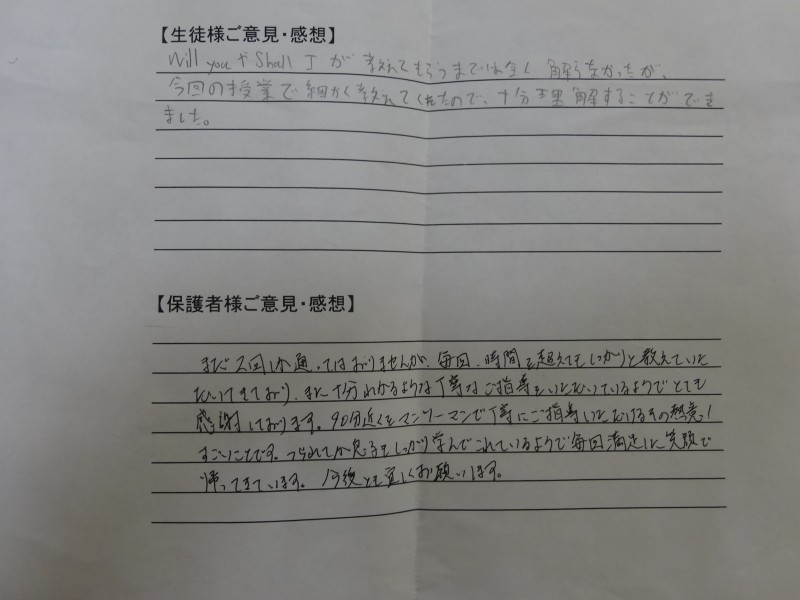 【生徒様ご意見・感想】
Will you や Shall I が 教えてもらうまでは全く 解らなかったが、
今回の授業で細かく教えてくれたので、十分理解することができ
ました。
【保護者様ご意見・感想】
まだ2回しか通ってはおりませんが、毎回、時間を超えてもしっかりと教えていた
だいてきており、また十分わかるような丁寧なご指導をいただいているようでとても
感謝しております。90分近くもマンツーマンで丁寧にご指導いただけるその熱意!
すごいことです。つられてか息子もしっかり学んでこれているようで毎回満足した笑顔で
帰ってきています。今後とも宜しくお願いします。